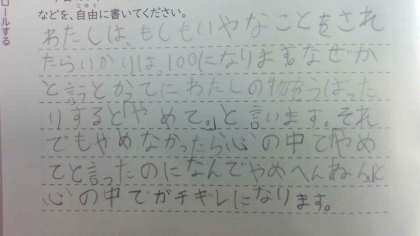 ロールする
などを、自由に書いてください。
わたしは、もしもいやなことをされ
たらいかりは100になりますなぜか
と言うとかってにわたしの物をうばった
りすると「やめて。」と言います。それ
でもやめなかったら心の中で「やめ
てと言ったのになんでやめへんねんと
心の中でガチキレになります。